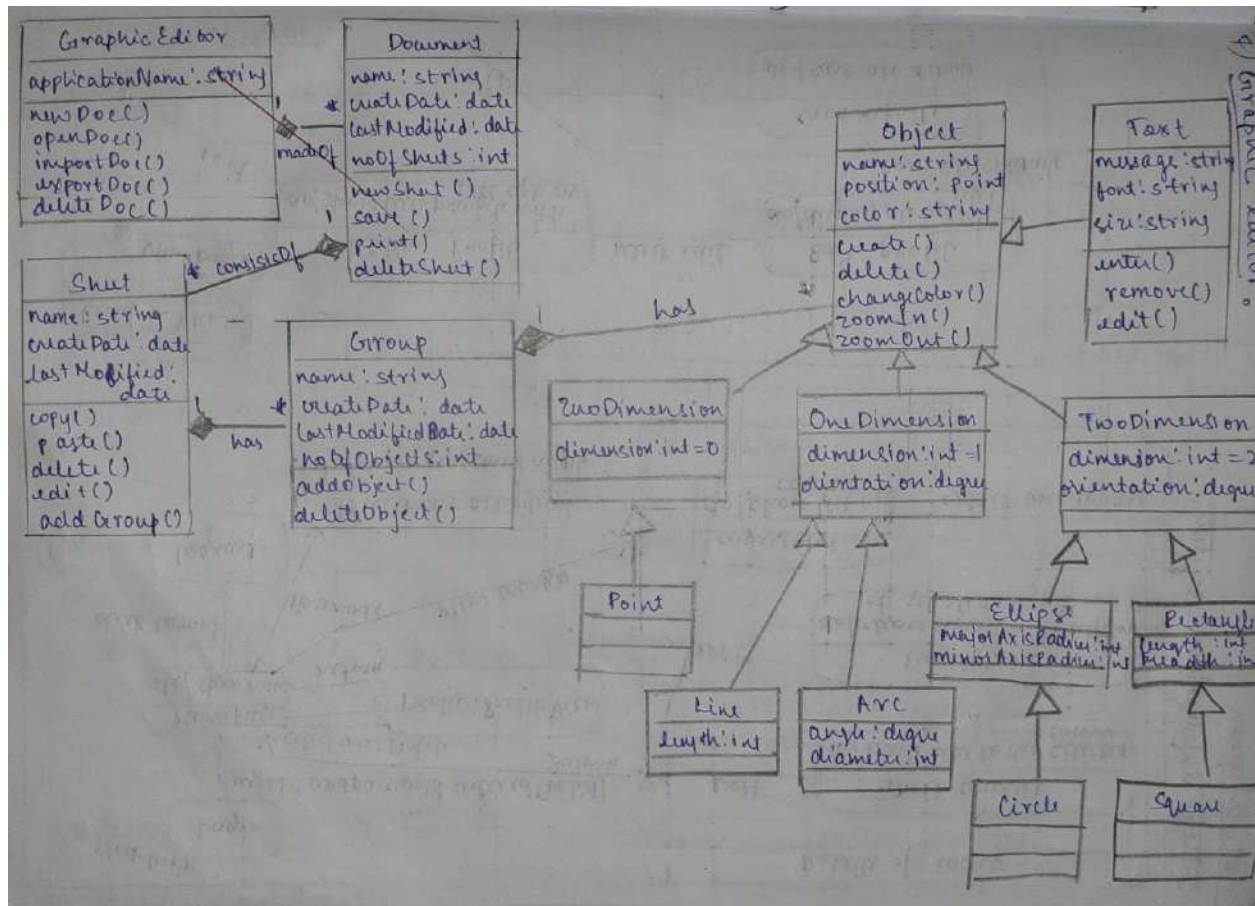 Graphic Editor
applicationName: string
newDoc()
openDoc()
importDoc()
exportDoc()
deleteDoc()
Document
name: string
createDate: date
lastModified: date
noOfSheets: int
newSheet()
save()
print()
deleteSheet()
1
*
madeOf
1
* consistsOf
Sheet
name: string
createDate: date
lastModified:
date
copy()
paste()
delete()
edit()
addGroup()
1
*
has
Group
name: string
createDate: date
lastModifiedDate: date
noOfObjects: int
addObject()
deleteObject()
1
has
*
Object
name: string
position: point
color: string
create()
delete()
changeColor()
zoomIn()
zoomOut()
Text
message: strin
font: string
size: string
enter()
remove()
edit()
4) Graphic Editor:
ZeroDimension
dimension: int = 0
OneDimension
dimension: int = 1
orientation: degree
TwoDimension
dimension: int = 2
orientation: degree
Point
Line
length: int
Arc
angle: degree
diameter: int
Ellipse
majorAxisRadius: int
minorAxisRadius: int
Rectangle
length: int
breadth: int
Circle
Square